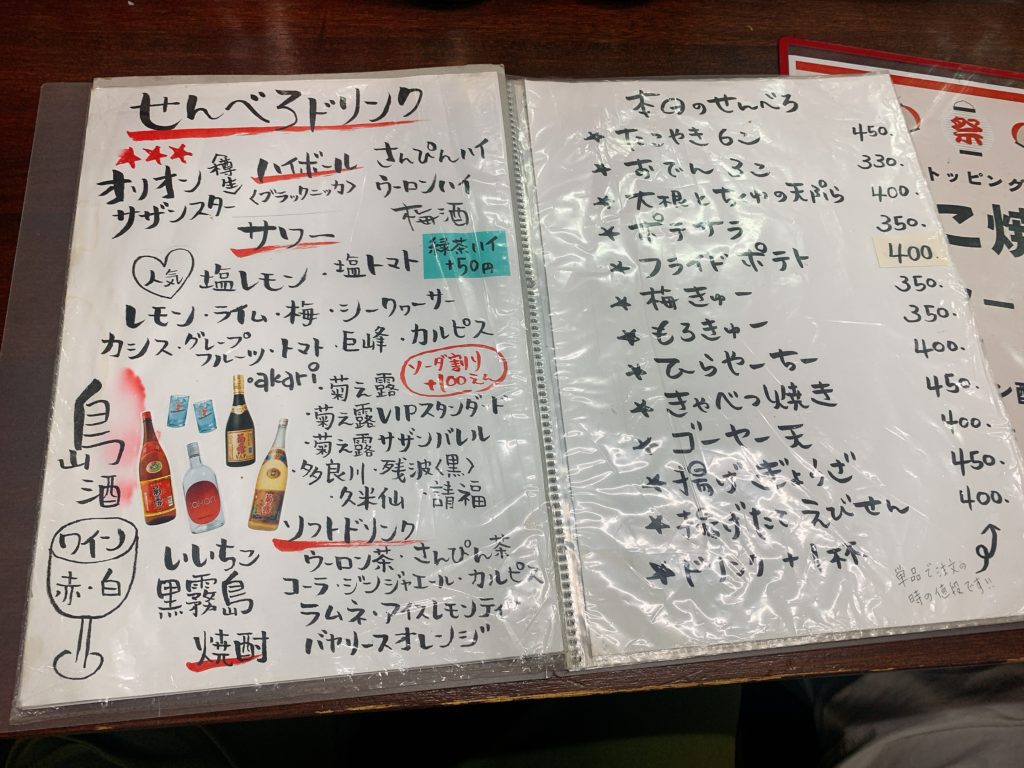 せんべろドリンク
★★★
オリオン樽生
サザンスター
ハイボール
〈ブラックニッカ〉
さんぴんハイ
ウーロンハイ
梅酒
サワー
緑茶ハイ
+50円
人気
塩レモン・塩トマト
レモン・ライム・梅・シークヮーサー
カシス・グレープフルーツ・トマト・巨峰・カルピス
ソーダ割り
+100えん
島酒
・akari
・菊之露
・菊之露VIPスタンダード
・菊之露サザンバレル
・多良川・残波〈黒〉
・久米仙・請福
ワイン
赤・白
いいちこ
黒霧島
焼酎
ソフトドリンク
ウーロン茶・さんぴん茶
コーラ・ジンジャエール・カルピス
ラムネ・アイスレモンティ
バヤリースオレンジ
本日のせんべろ
★たこやき6こ 450.
★おでん3こ 330.
★大根とちくわの天ぷら 400.
★ポテサラ 350.
★フライドポテト 400.
★梅きゅー 350.
★もろきゅー 350.
★ひらやーちー 400.
★きゃべつ焼き 450.
★ゴーヤー天 400.
★揚げぎょうざ 450.
★揚げたこえびせん 400.
★ドリンク+1杯
単品で注文の
時の値段です!!
祭
トッピング
こ焼